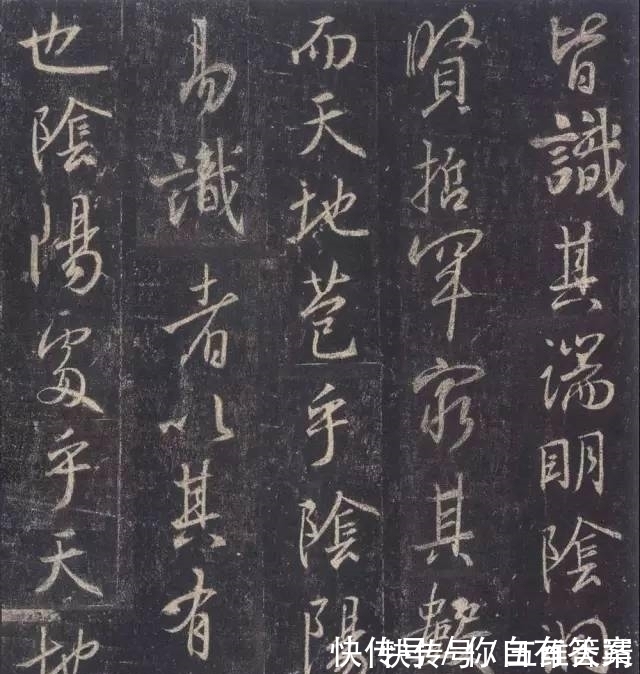 皆識其端明陰洞
賢哲罕窮其數
而天地苞乎陰陽
易識者以其有
也陰陽處乎天地
快传号/